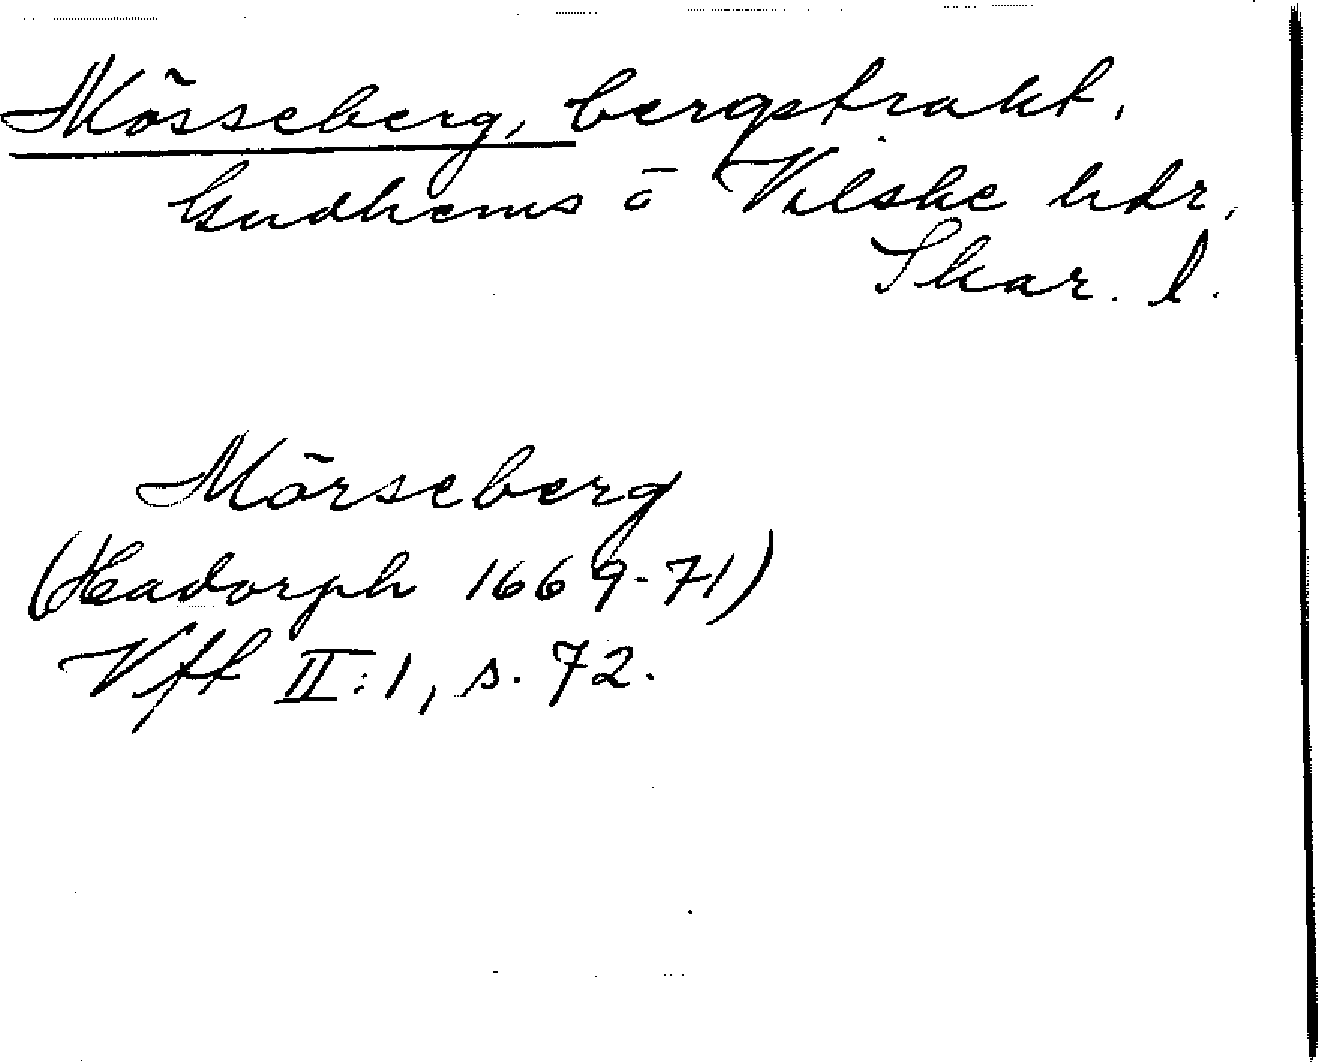 Mösseberg, bergstrakt.
Gudhems o Vilske hdr,
Skar. l.
Mörseberg
(Hadorph 1669-71)
Vft II:1, s. 72.